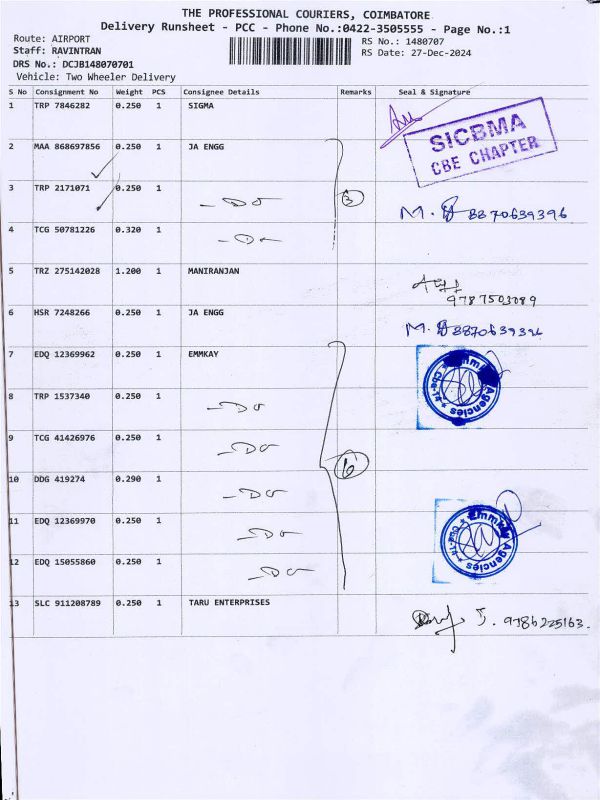 THE PROFESSIONAL COURIERS, COIMBATORE
Delivery Runsheet - PCC - Phone No.:0422-3505555 - Page No.:1
Route: AIRPORT
RS No.: 1480707
Staff: RAVINTRAN
RS Date: 27-Dec-2024
DRS No.: DCJB148070701
Vehicle: Two Wheeler Delivery
S No Consignment No Weight PCS Consignee Details Remarks Seal & Signature
1 TRP 7846282 0.250 1 SIGMA
SICBMA
CBE CHAPTER
2 MAA 868697856 0.250 1 JA ENGG
3 TRP 2171071 0.250 1 -Do 3
M. 8870639396
4 TCG 50781226 0.320 1 -Do
5 TRZ 275142028 1.200 1 MANIRANJAN
9787503089
6 HSR 7248266 0.250 1 JA ENGG
M. 8870639396
7 EDQ 12369962 0.250 1 EMMKAY
Emmkay Agencies Cbe-11
8 TRP 1537340 0.250 1 -Do
9 TCG 41426976 0.250 1 -Do 6
10 DDG 419274 0.290 1 -Do
11 EDQ 12369970 0.250 1 -Do
Emmkay Agencies Cbe-11
12 EDQ 15055860 0.250 1 -Do
13 SLC 911208789 0.250 1 TARU ENTERPRISES
J. 9786225163.